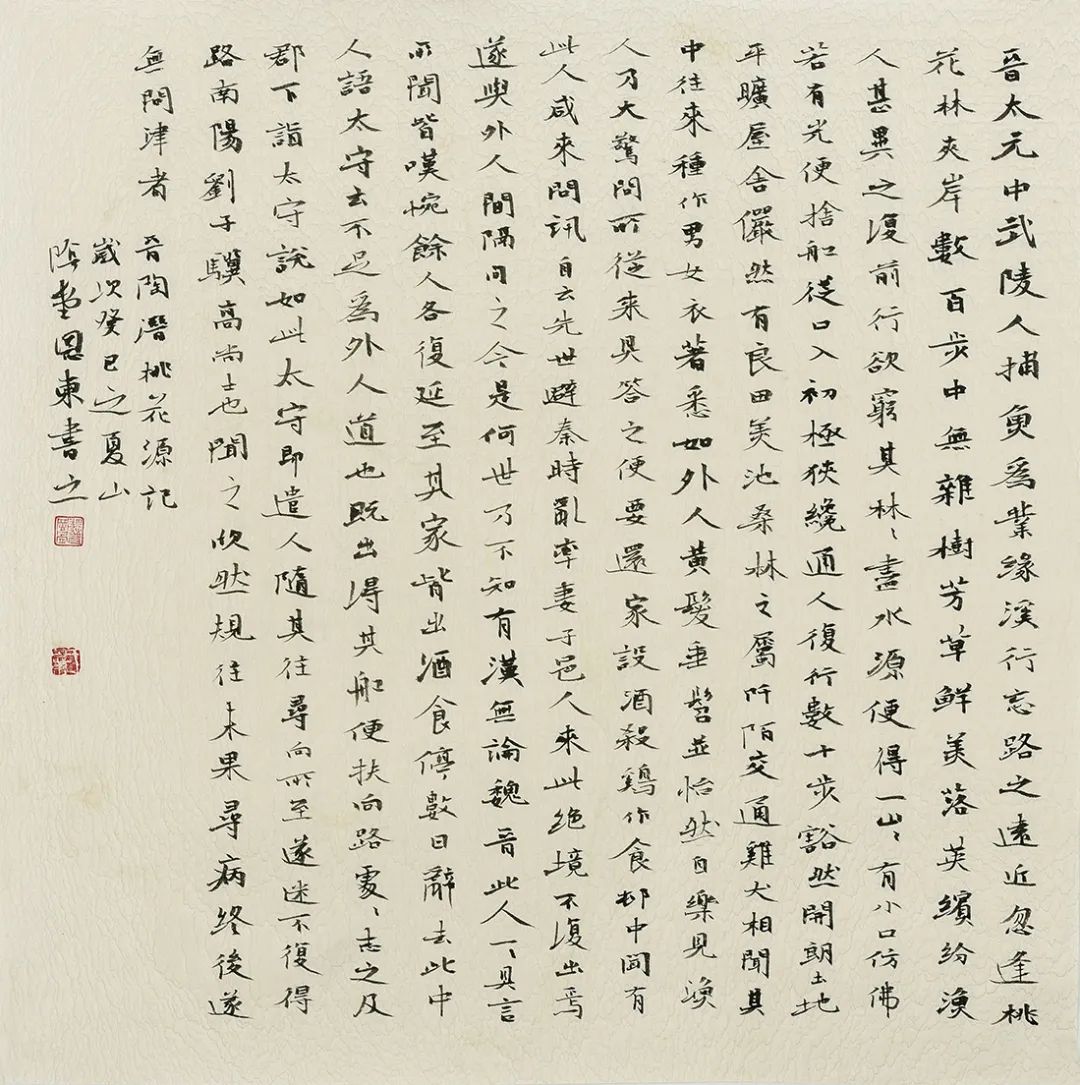 晉太元中武陵人捕魚為業緣溪行忘路之遠近忽逢桃
花林夾岸數百步中無雜樹芳草鮮美落英繽紛漁
人甚異之復前行欲窮其林〻盡水源便得一山〻有小口仿佛
若有光便捨船從口入初極狹纔通人復行數十步豁然開朗土地
平曠屋舍儼然有良田美池桑林之屬阡陌交通雞犬相聞其
中往來種作男女衣著悉如外人黃髮垂髫並怡然自樂見漁
人乃大驚問所從來具答之便要還家設酒殺鷄作食邨中聞有
此人咸來問訊自云先世避秦時亂率妻子邑人來此絕境不復出焉
遂與外人間隔問之今是何世乃不知有漢無論魏晉此人一一具言
所聞皆嘆惋餘人各復延至其家皆出酒食停數日辭去此中
人語太守云不足為外人道也既出得其船便扶向路處〻志之及
郡下詣太守說如此太守即遣人隨其往尋向所至遂迷不復得
路南陽劉子驥高尚士也聞之欣然規往未果尋病終後遂
無問津者
晉陶潛桃花源記
歲次癸巳之夏山
陰恩東書之